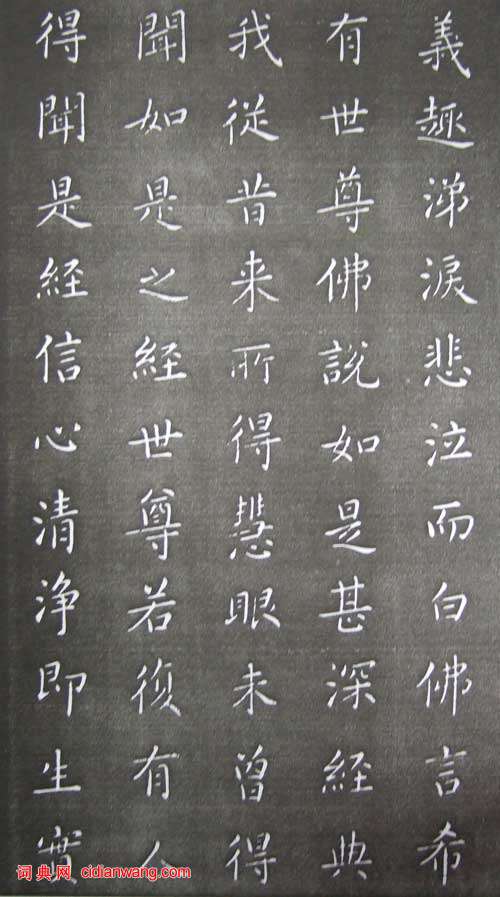 義趣涕淚悲泣而白佛言希
有世尊佛說如是甚深經典
我從昔来所得慧眼未曾得
聞如是之經世尊若復有人
得聞是経信心清净即生實
词典网 cidianwang.com